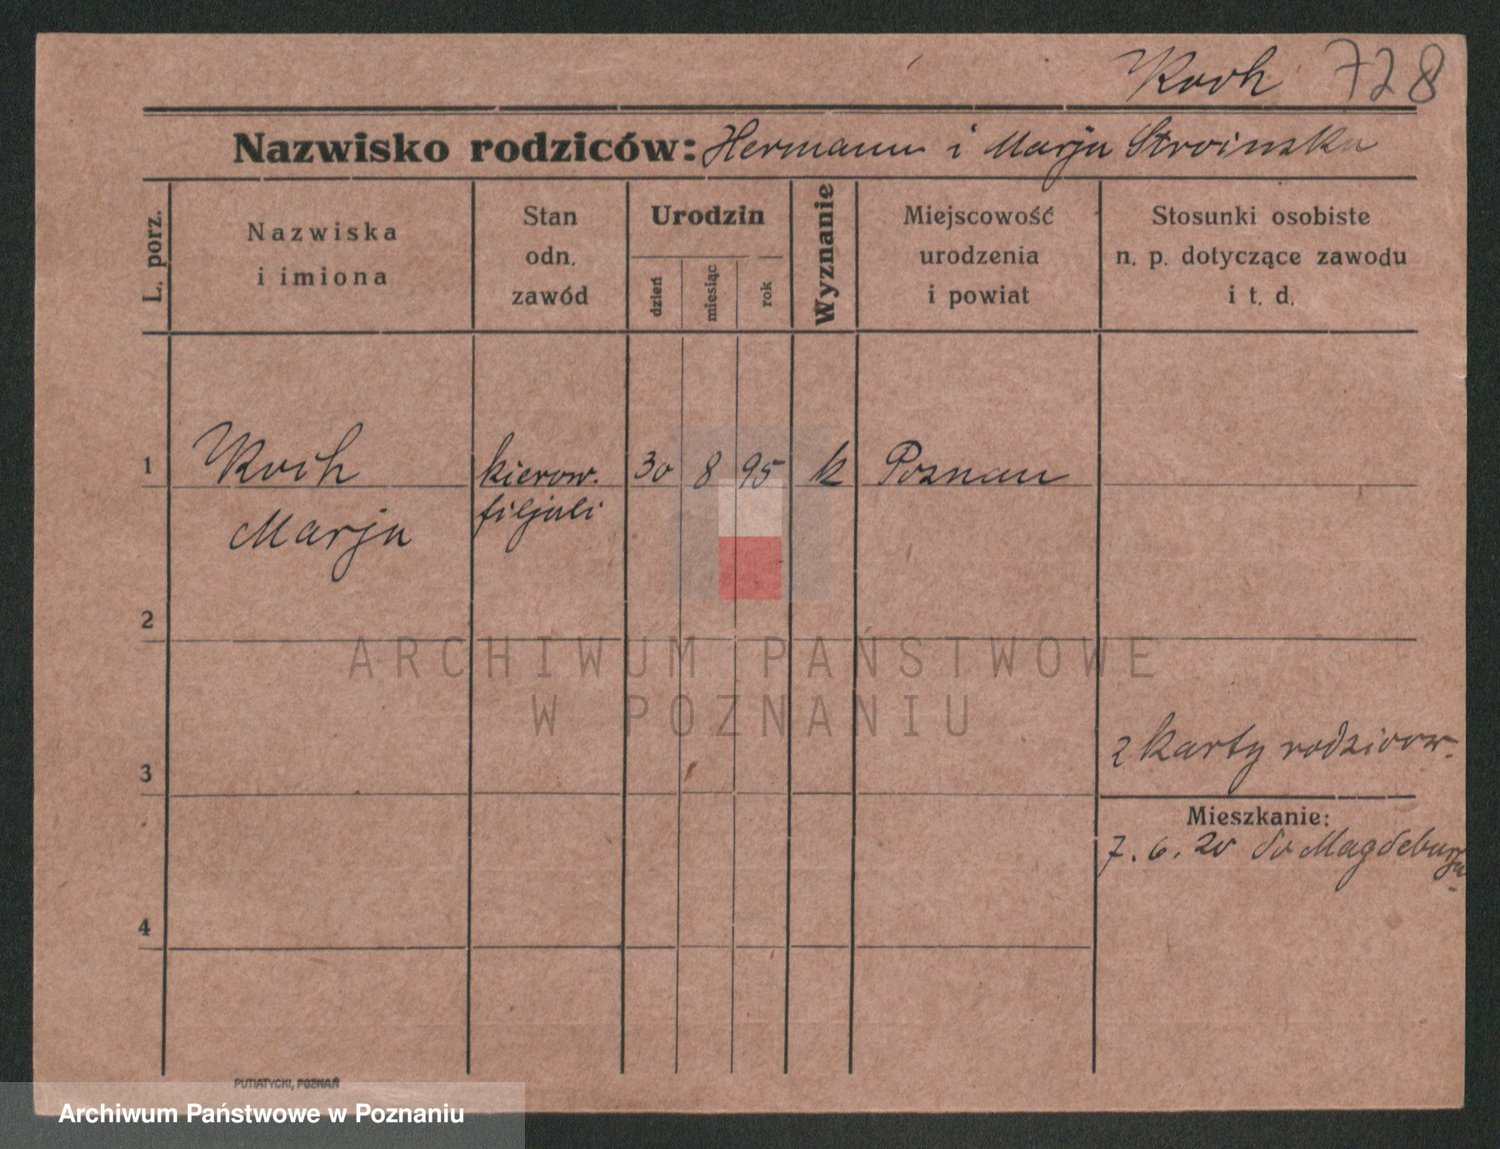 Koch 728
Nazwisko rodziców: Hermann i Marja Stroinska
L. porz.
Nazwiska
i imiona
Stan
odn.
zawód
Urodzin
dzień
miesiąc
rok
Wyznanie
Miejscowość
urodzenia
i powiat
Stosunki osobiste
n. p. dotyczące zawodu
i t. d.
1 Koch kierow. 30 8 95 k Poznan
Marja filjali
2
ARCHIWUM PAŃSTWOWE
W POZNANIU
2 karty rodzicow.
3
Mieszkanie:
7. 6. 20 do Magdeburga.
4
PUTIATYCKI, POZNAŃ
Archiwum Państwowe w Poznaniu